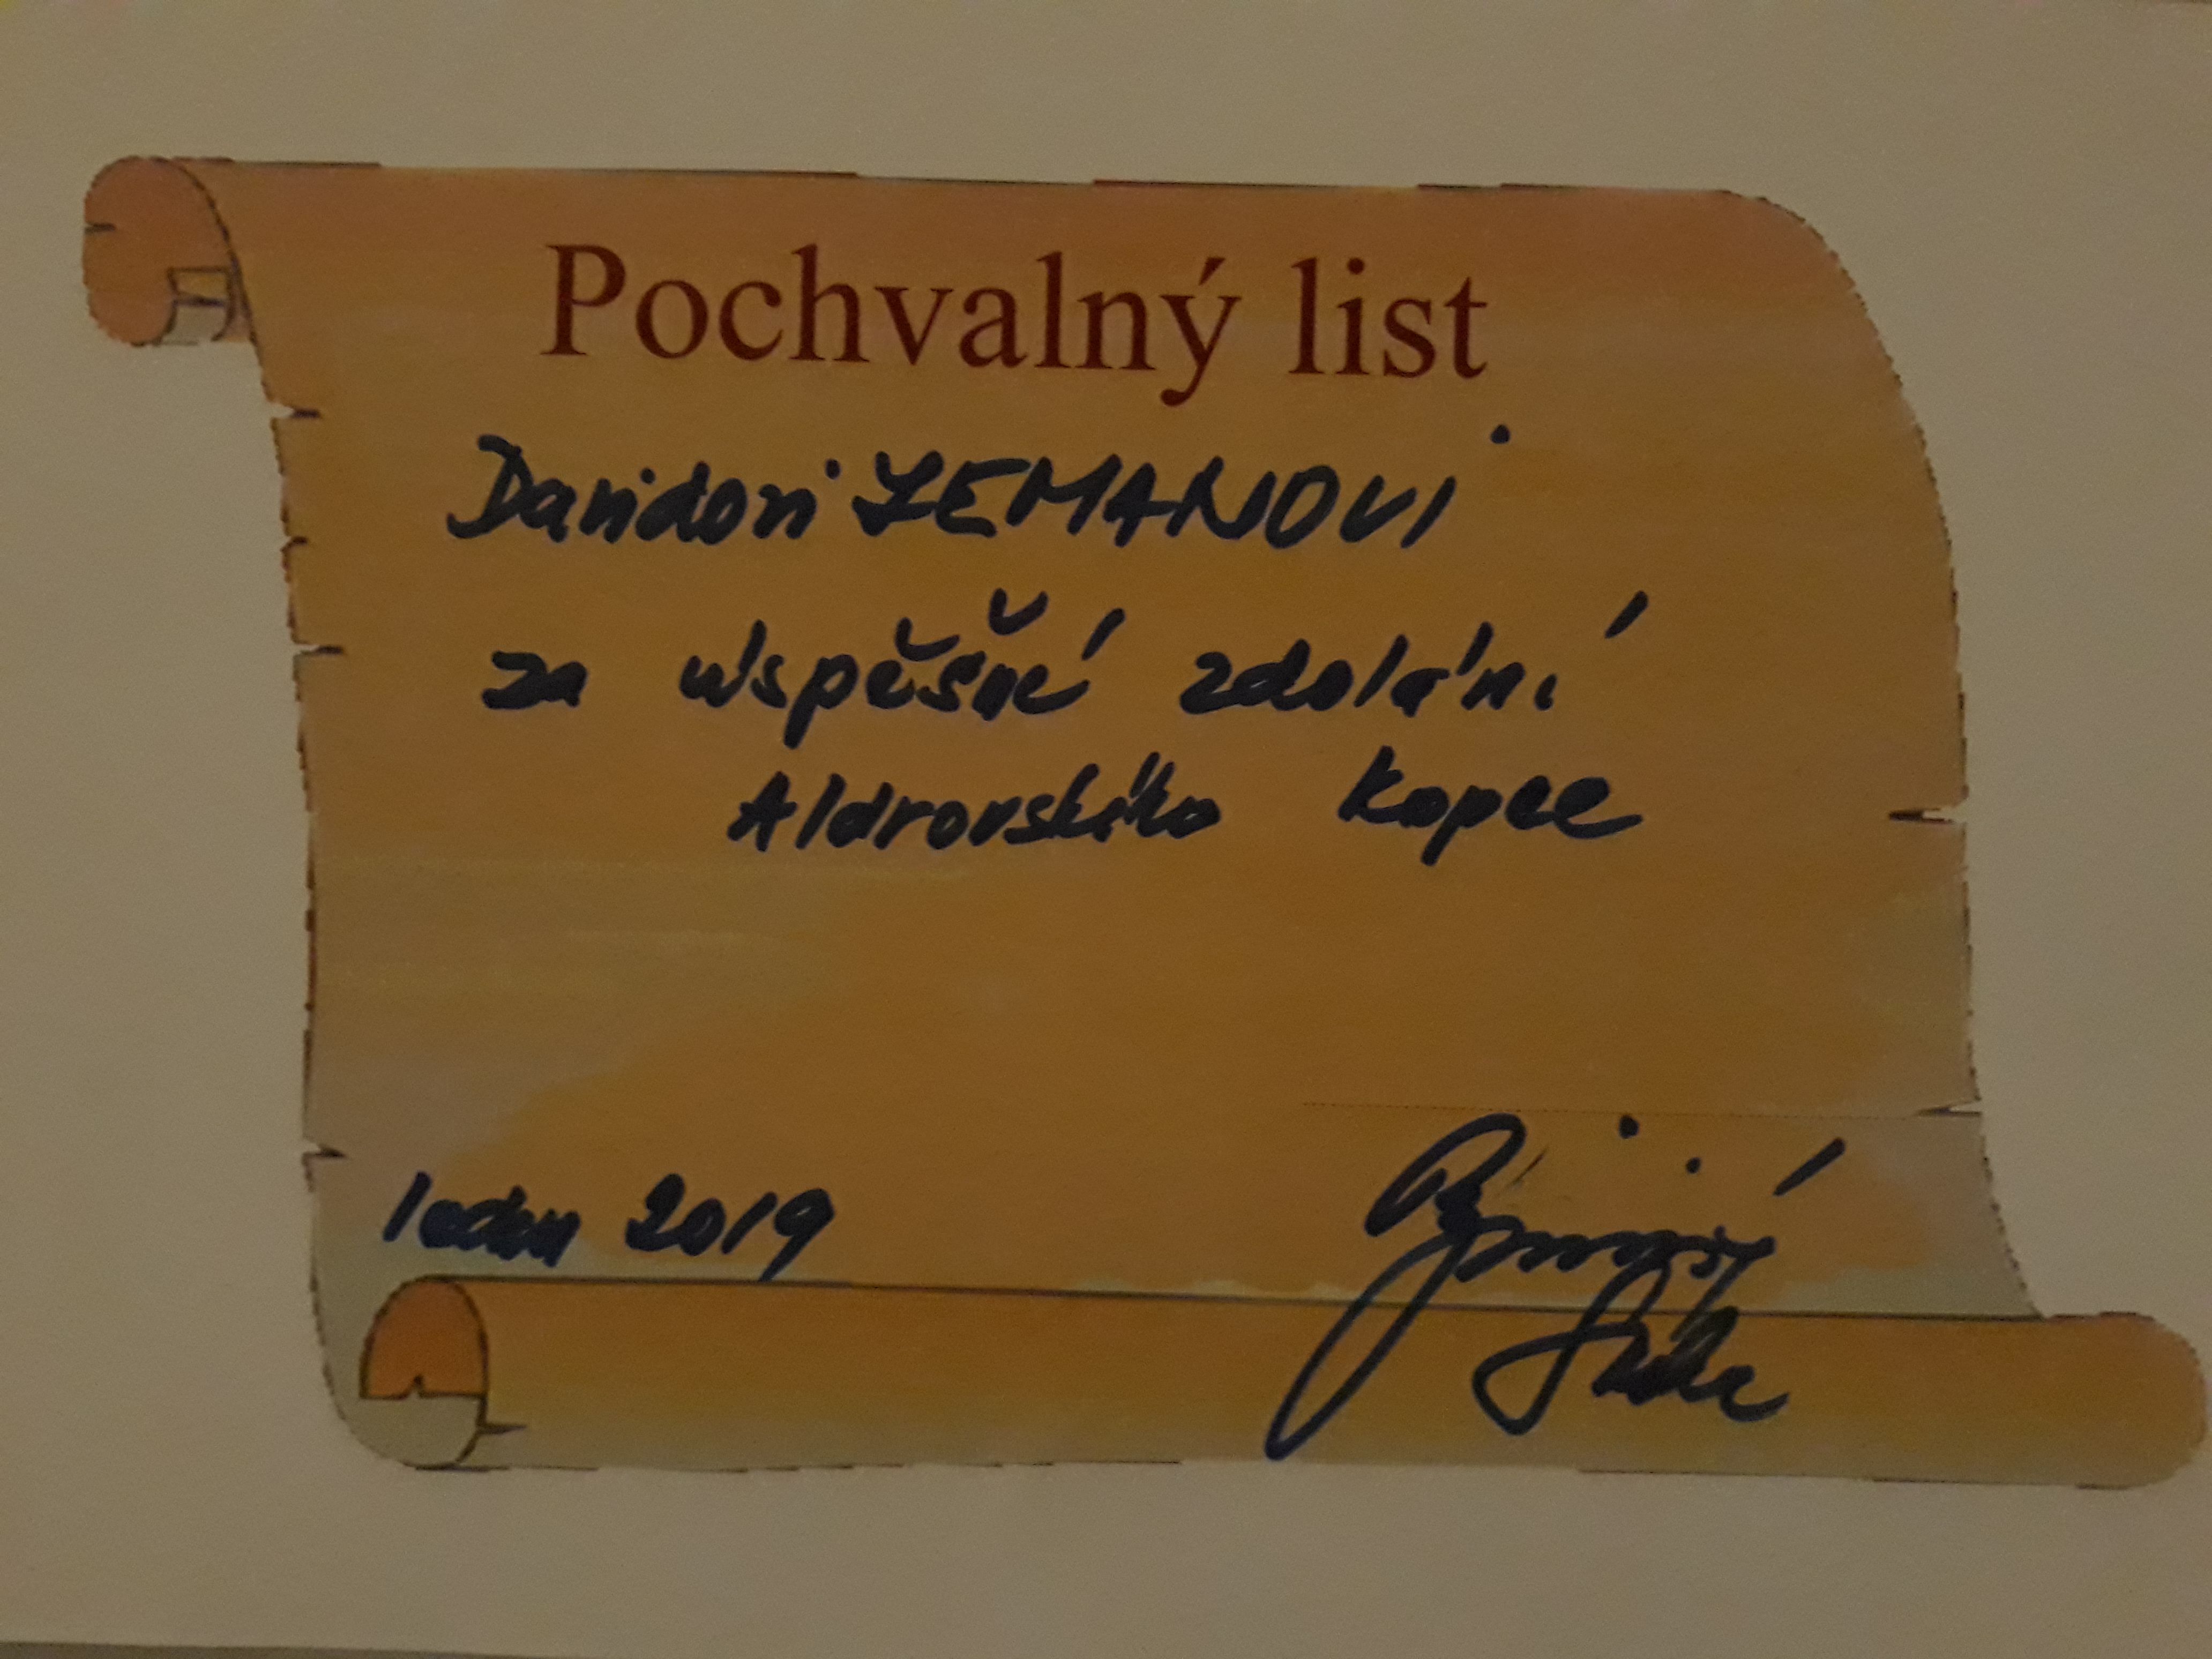 Pochvalný list
Davidovi ZEMANOVI
za úspěšné zdolání
Aldrovského kopce
leden 2019